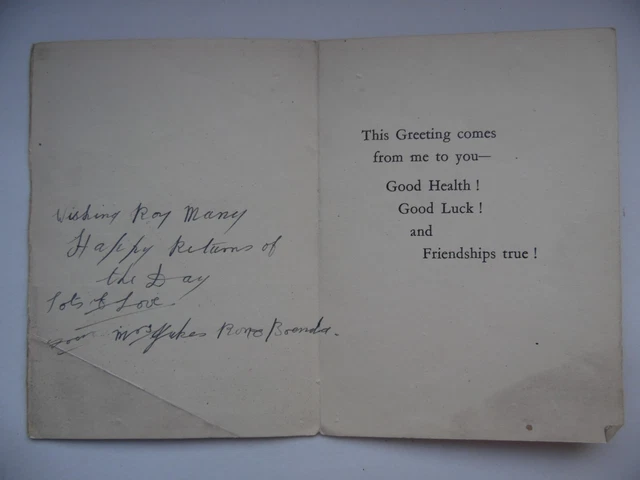 Wishing Roy Many
Happy Returns of
the Day
lots of Love
from Mrs Jukes Brenda.
This Greeting comes
from me to you—
Good Health !
Good Luck !
and
Friendships true !